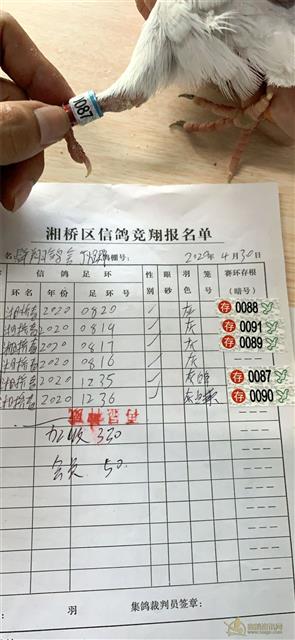 1087
湘桥区信鸽竞翔报名单
名 棚号: 2020年4月30日
信鸽足环 性别 眼砂 羽色 笼号 赛环存根
环名 年份 足环号 (暗号)
2020 0820 灰 存 0088
2020 0819 灰 存 0091
2020 0817 灰 存 0089
2020 0816 灰
2020 1235 存 0087
2020 1236 存 0090
收 330
会员 50.
羽 集鸽裁判员签章: